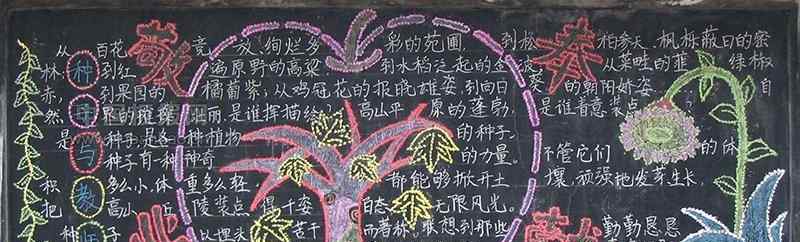 从 百花 竞 放、绚烂多 彩的苑囿，到松 柏参天、枫栎蔽日的密
林；到红 遍原野的高粱，到水稻泛起的金 波 从菜畦的韭 绿椒
赤，到果园的 橘葡紫；从鸡冠花的报晓雄姿，到向日 葵 的朝阳娇姿。自
然 界的 丽，是谁挥描绘 高山平 原的蓬勃， 是谁着意装点
是 种子，是各种植物 的种子。
种子有一种神奇 的力量。 不管它们 的体
积 多么小，体 重多么轻 都能够掀开土 壤，顽强地发芽生长，
把 高山、丘 陵装点 得千姿 百态、无限风光。
种子 以埋头 苦干 而著称，联想到那些 勤勤恳恳
敬 奉 献
种 与 教 师